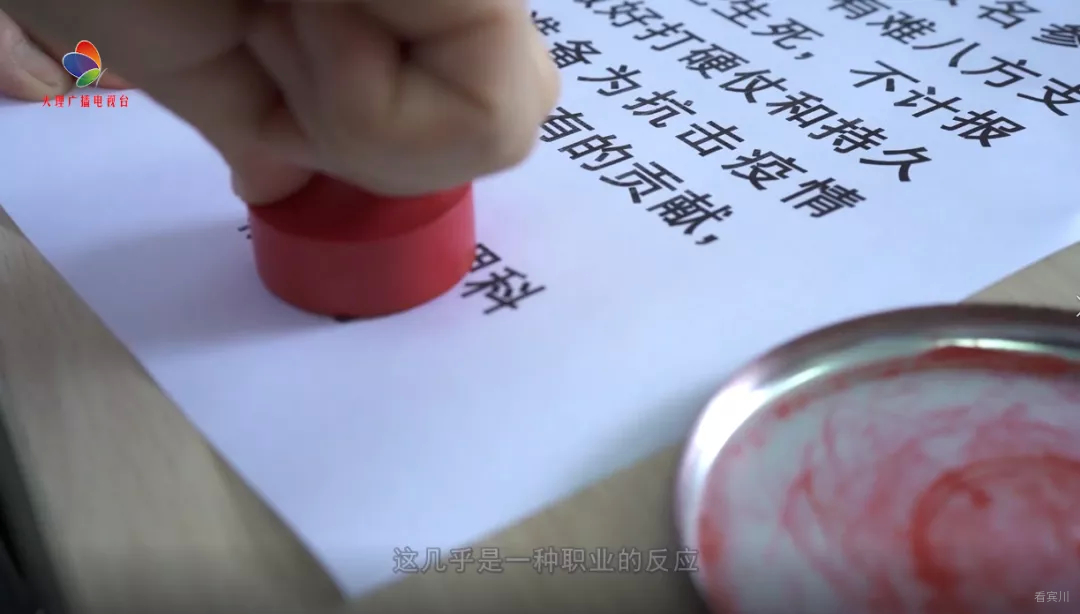 大理广播电视台
名参
有难八方支
生死，不计报
好打硬仗和持久
准备为抗击疫情
有的贡献，
科
这几乎是一种职业的反应
看宾川